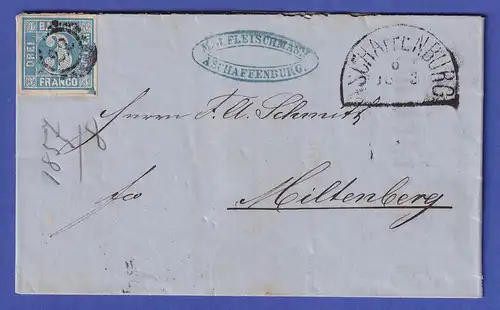 BAYERN
DREI
FRANCO
M. J. FLEISCHMANN
ASCHAFFENBURG.
ASCHAFFENBURG
6
18 3
Herrn F. A. Schmitt
fco
Miltenberg
1857
/8